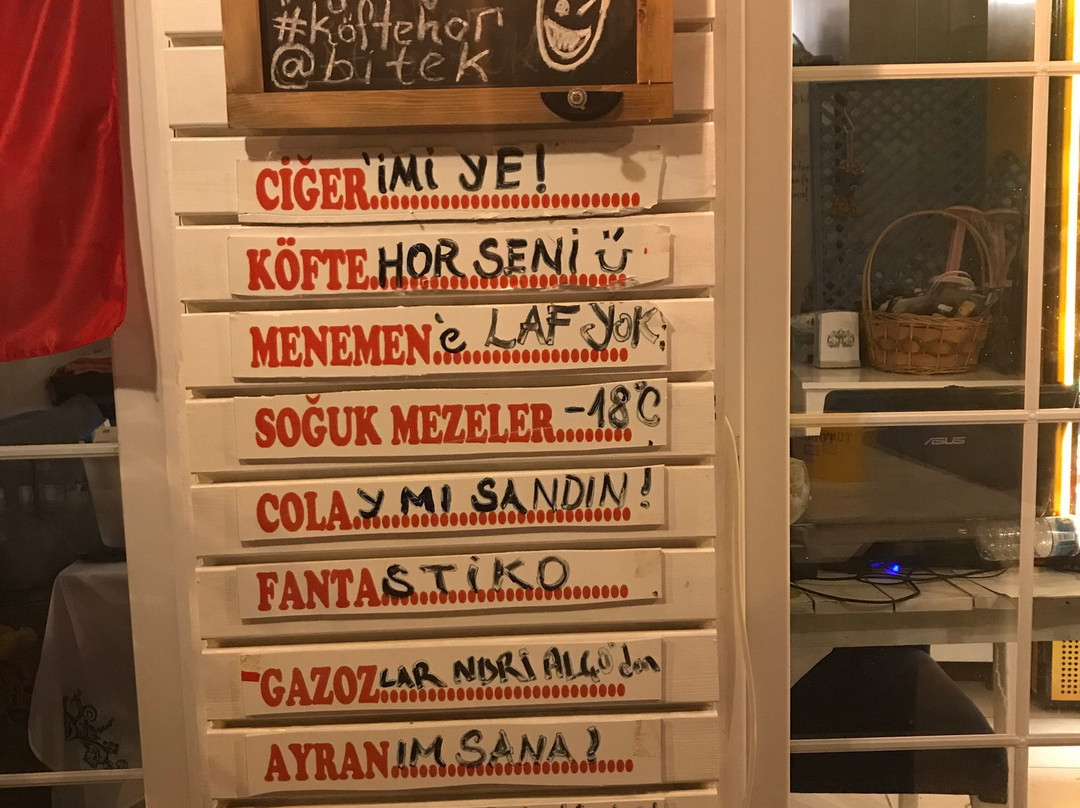 #köftehor
@bitek
CİĞER'İMİ YE!
KÖFTEHOR SENİ
MENEMEN'e LAF YOK
SOĞUK MEZELER -18°C
COLAY MI SANDIN!
FANTASTİKO
GAZOZLAR NURİ ALÇO'dan
AYRANIM SANA!
ASUS